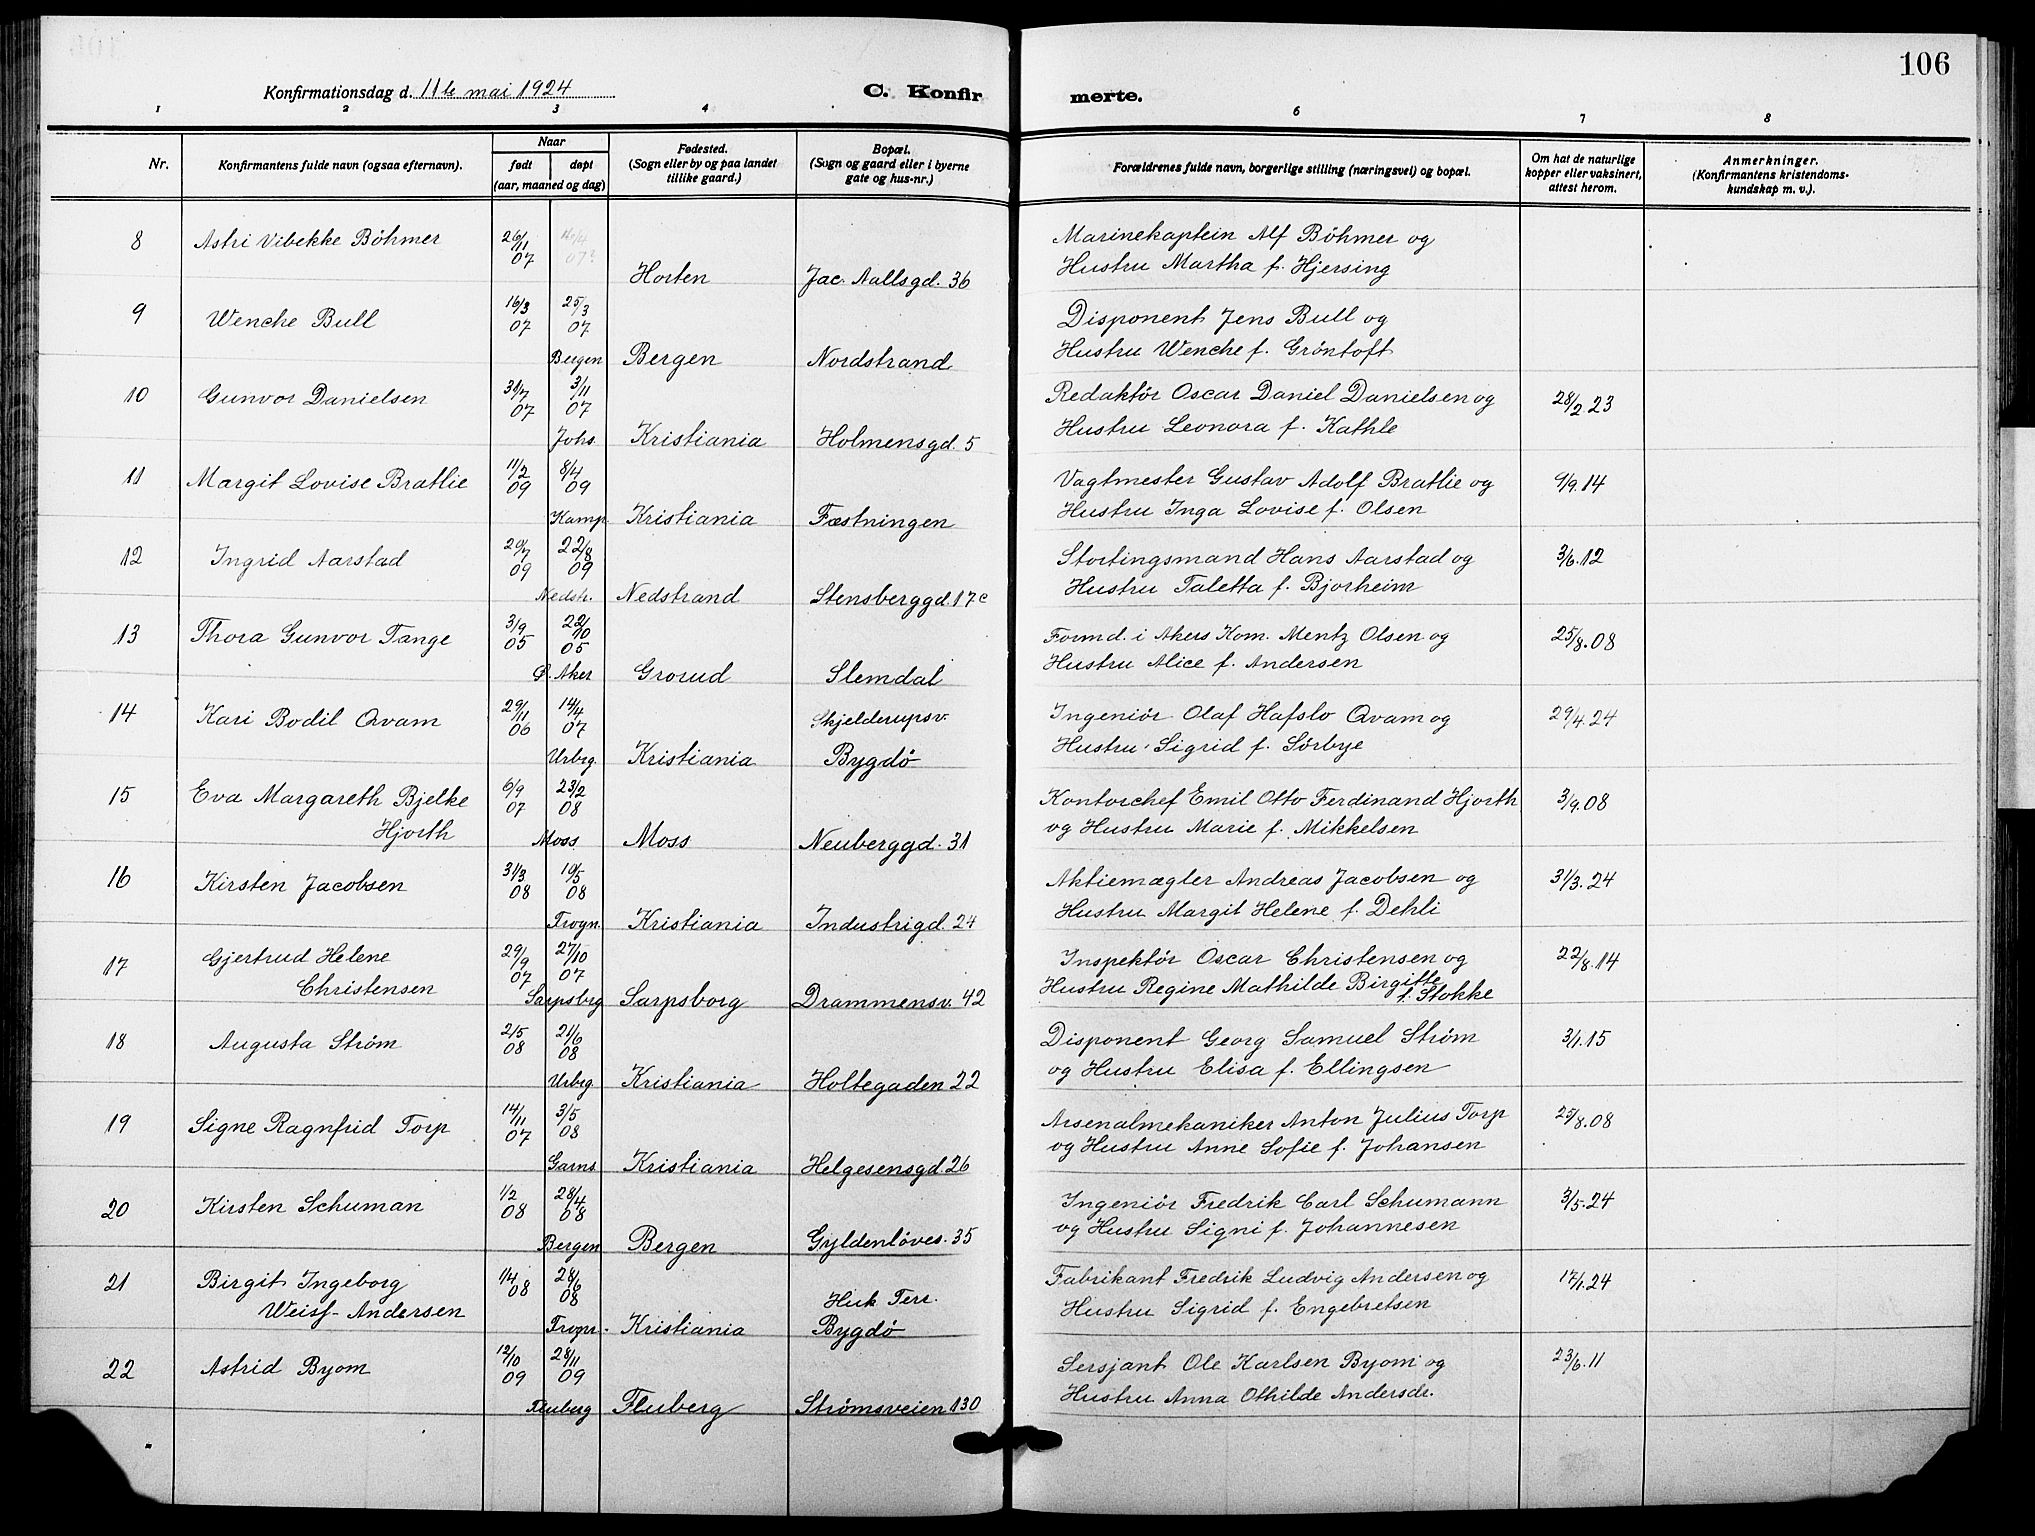 106
Konfirmationsdag d. 11te mai 1924
C. Konfirmerte.
1 2 3 4 6 7 8
Nr.
Konfirmantens fulde navn (ogsaa efternavn).
Naar
født døpt
(aar, maaned og dag)
Fødested.
(Sogn eller by og paa landet
tillike gaard.)
Bopæl.
(Sogn og gaard eller i byerne
gate og hus-nr.)
Forældrenes fulde navn, borgerlige stilling (næringsvei) og bopæl.
Om hat de naturlige
kopper eller vaksinert,
attest herom.
Anmerkninger.
(Konfirmantens kristendoms-
kundskap m. v.).
8 Astri Vibekke Böhmer 26/11 07
Horten Jac. Aallsgd. 36
Marinekaptein Alf Böhmer og
Hustru Martha f. Hjersing
9 Wenche Bull 16/3 07 25/3 07
Bergen Bergen Nordstrand
Disponent Jens Bull og
Hustru Wenche f. Gröntoft
10 Gunvor Danielsen 31/7 07 3/11 07
Johs. Kristiania Holmensgd. 5
Redaktör Oscar Daniel Danielsen og 28/2.23
Hustru Leonora f. Kathle
11 Margit Lovise Bratlie 11/2 09 8/4 09
Kamp. Kristiania Fæstningen
Vagtmester Gustav Adolf Bratlie og 9/9.14
Hustru Inga Lovise f. Olsen
12 Ingrid Aarstad 20/7 09 22/8 09
Nedstr. Nedstrand Stensberggd. 17c
Stortingsmand Hans Aarstad og 3/6.12
Hustru Taletta f. Bjorheim
13 Thora Gunvor Tange 3/9 05 22/10 05
Ø. Aker Grorud Slemdal
Formd. i Akers Kom. Mentz Olsen og 25/8.08
Hustru Alice f. Andersen
14 Kari Bodil Qvam 29/11 06 14/4 07 Skjelderupsv.
Urbg. Kristiania Bygdö
Ingeniör Olaf Hafslo Qvam og 29/4.24
Hustru Sigrid f. Sörbye
15 Eva Margareth Bjelke 6/9 07 23/2 08
Hjorth
Moss Moss Neuberggd. 31
Kontorchef Emil Otto Ferdinand Hjorth 3/9.08
og Hustru Marie f. Mikkelsen
16 Kirsten Jacobsen 31/3 08 10/5 08
Frogn. Kristiania Industrigd. 24
Aktiemægler Andreas Jacobsen og 31/3.24
Hustru Margit Helene f. Dehli
17 Gjertrud Helene 29/9 07 27/10 07
Christensen
Sarpsbrg Sarpsborg Drammensv. 42
Inspektör Oscar Christensen og 22/8.14
Hustru Regine Mathilde Birgitte
f. Stokke
18 Augusta Ström 2/5 08 21/6 08
Urbrg. Kristiania Holtegaden 22
Disponent Georg Samuel Ström 3/1.15
og Hustru Elisa f. Ellingsen
19 Signe Ragnfrid Torp 14/11 07 3/5 08
Garns. Kristiania Helgesensgd. 26
Arsenalmekaniker Anton Julius Torp 25/8.08
og Hustru Anne Sofie f. Johansen
20 Kirsten Schuman 1/2 08 28/4 08
Bergen Bergen Gyldenlöves. 35
Ingeniör Fredrik Carl Schumann 3/5.24
og Hustru Signi f. Johannesen
21 Birgit Ingeborg 1/4 08 28/6 08
Weisf-Andersen Huk Terr.
Frogn. Kristiania Bygdö
Fabrikant Fredrik Ludvig Andersen og 17/1.24
Hustru Sigrid f. Engebretsen
22 Astrid Byom 12/10 09 28/11 09
Fluberg Fluberg Strömsveien 130
Sersjant Ole Karlsen Byom og 23/6.11
Hustru Anna Othilde Andersdr.